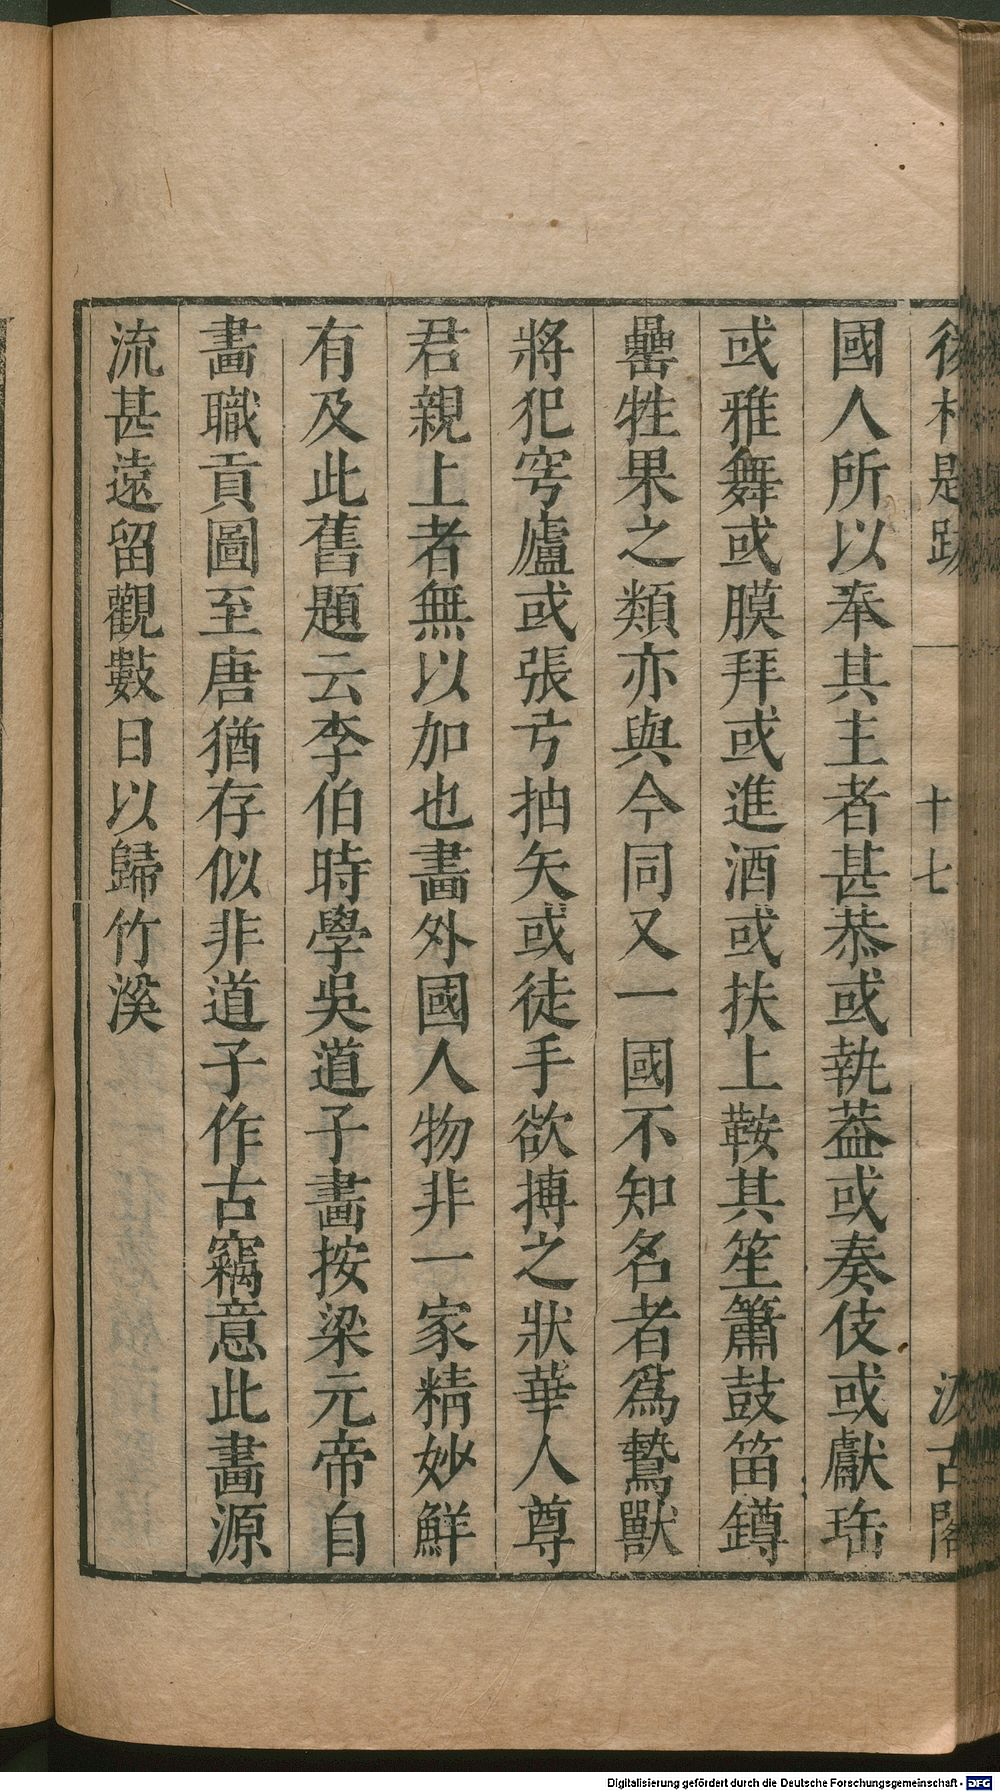 後村題跋 十七 汲古閣
國人所以奉其主者甚恭或執葢或奏伎或獻珤
或雅舞或膜拜或進酒或扶上鞍其笙簫鼓笛鐏
罍牲果之類亦與今同又一國不知名者爲鷙獸
將犯穹廬或張弓抽矢或徒手欲搏之狀華人尊
君親上者無以加也畫外國人物非一家精妙鮮
有及此舊題云李伯時學吳道子畫按梁元帝自
畫職貢圖至唐猶存似非道子作古竊意此畫源
流甚遠留觀數日以歸竹溪
Digitalisierung gefördert durch die Deutsche Forschungsgemeinschaft - DFG